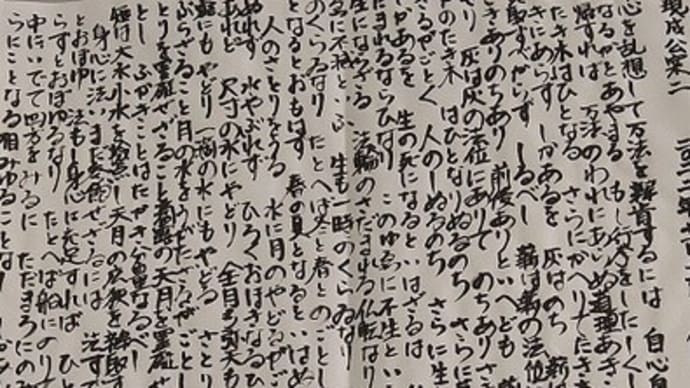 現成公案二
心を乱想して万法を辨肯するには 自心
なるかとあやまる もし行李をしたしくし
帰すれば 万法のわれにあらぬ道理あき
たき木はひとなる さらにかへりてたき
きにあらず しかあるを 灰はのち 薪は
取すべからず しるべし 薪は薪の法位
きありのちあり 前後ありといへども
り 灰は灰の法位にありて のちありさ
のたき木 はひとなりぬるのち さらに
るがごとく 人のしぬるのち さらに生
かあるを 生の死になるといはざるは
たまれるならひなり このゆゑに不生といふ
生にならざる 法輪のさだまれる仏転なり
ゑに不滅といふ 生も一時のくらゐなり
のくらゐなり たとへば冬と春とのごとし
となるとおもはず 春の夏となるといはぬ
人のさとりをうる 水に月のやどるがご
ぬれず 水やぶれず ひろくおほきなるひ
あれど 尺寸の水にやどり 全月も弥天も
露にもやどり 一滴の水にもやどる さとり
ぶらざること月の水をうがたざるがごとし
とりを罣礙せざること滴露の天月を罣礙せ
とし ふかきことはたかき分量なるべし
短は大水小水を撿点し天月の広狭を辨取す
身心に法いまだ参飽せざるには 法すで
とおぼゆ 法もし身心に充足すれば ひと
らずとおぼゆるなり たとへば船にのりて
中にいでて四方をみるに ただまろにのみ
らにことなる相みゆること